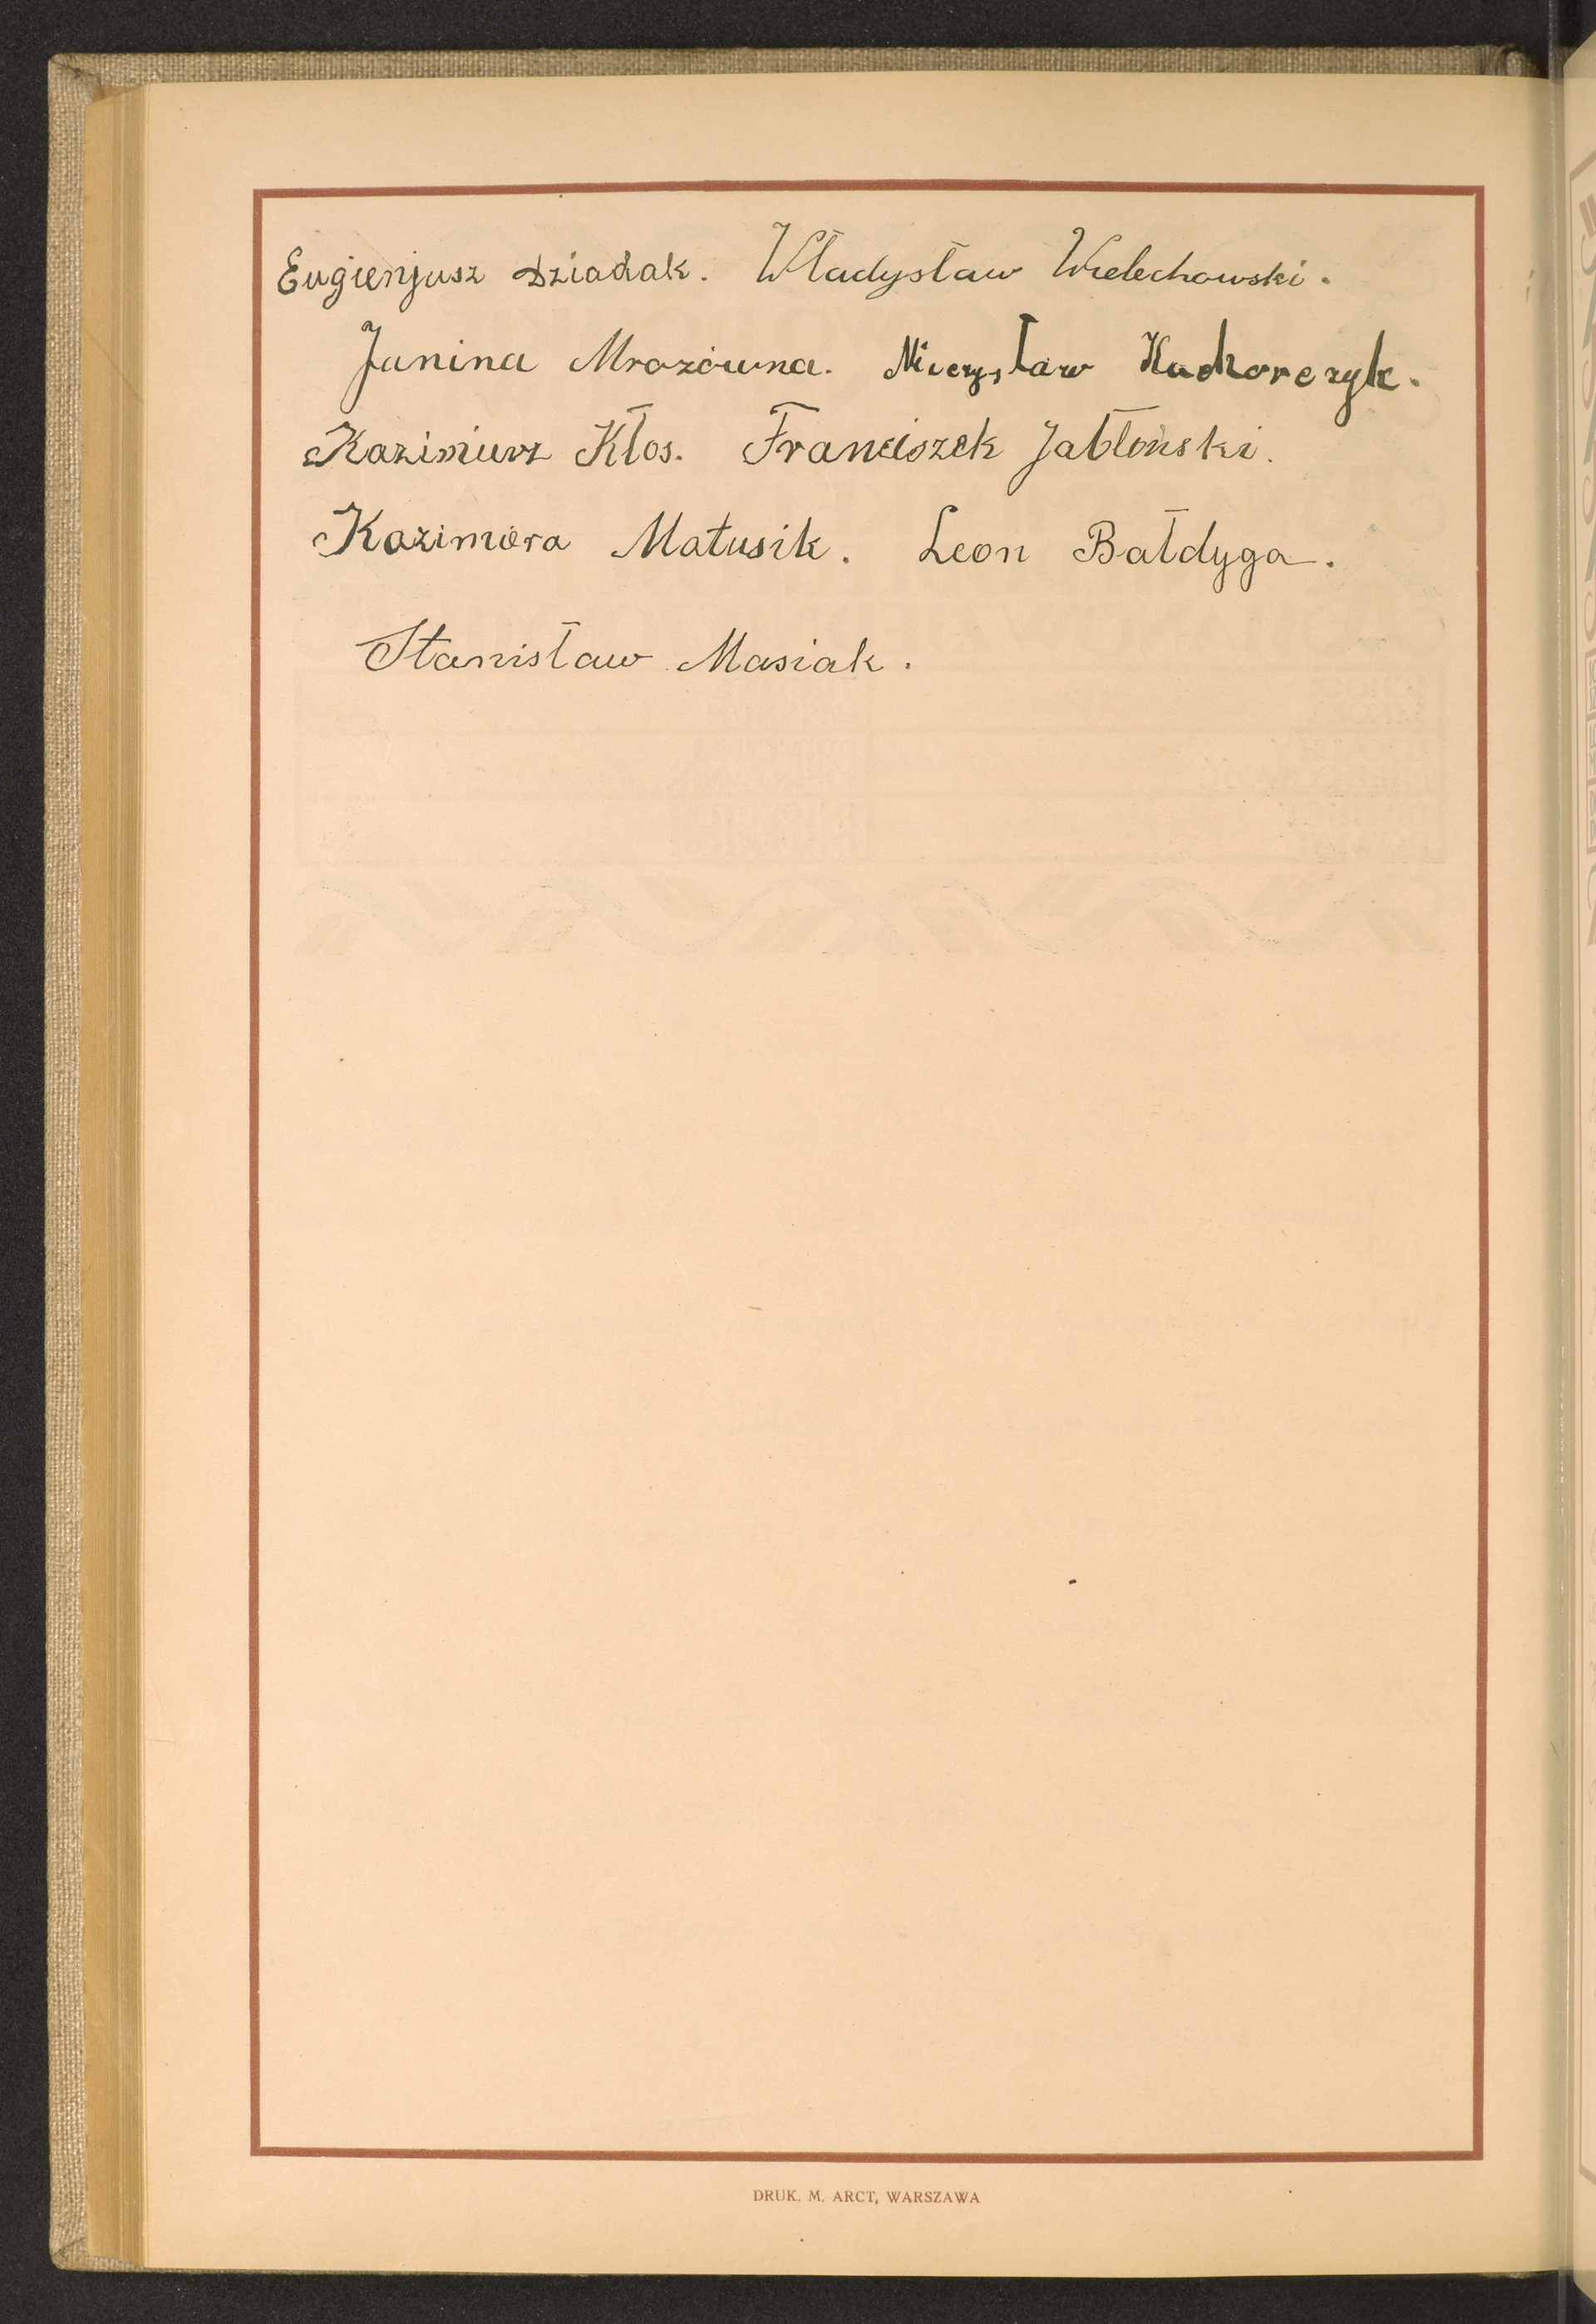 Eugienjusz Dziadak. Władysław Wielechowski.
Janina Mrozówna. Mieczysław Kudkorczyk.
Kazimierz Kłos. Franciszek Jabłoński.
Kazimiera Matusik. Leon Bałdyga.
Stanisław Masiak.
DRUK. M. ARCT, WARSZAWA